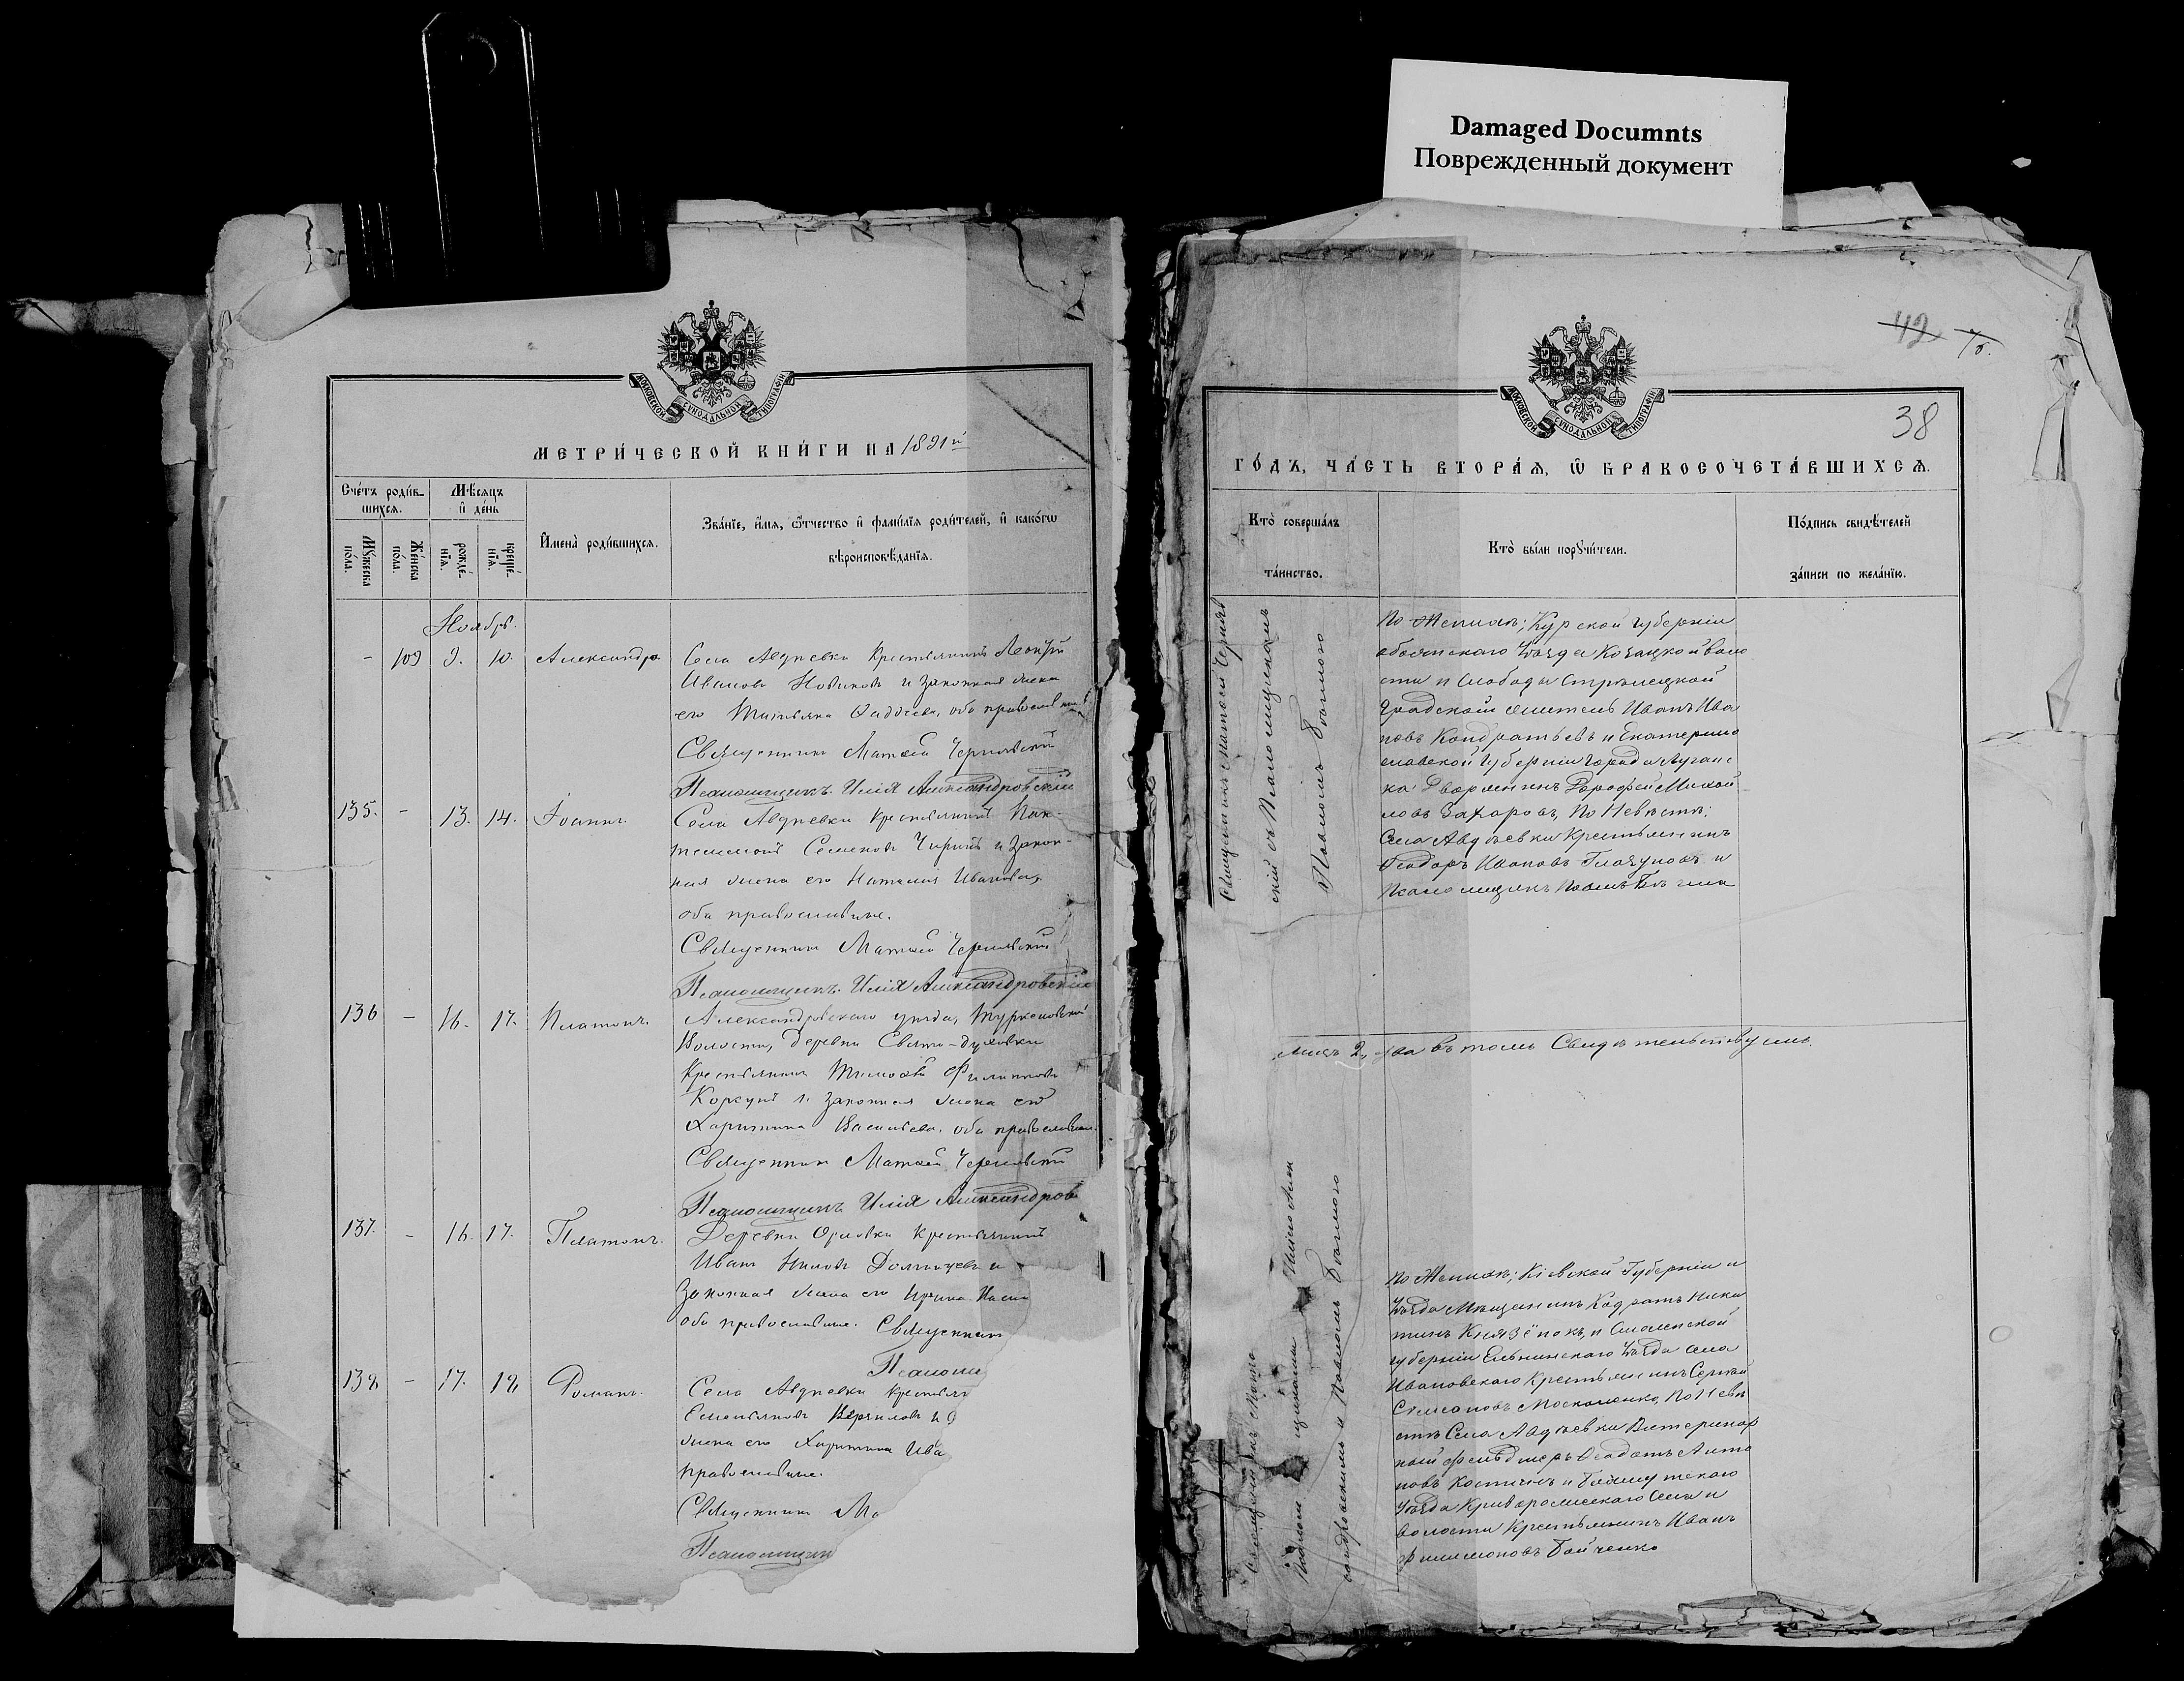 Damaged Documnts
Поврежденный документ
МОСКОВСКОЙ СѴНОДАЛЬНОЙ ТИПОГРАФІИ
МЕТРИ́ЧЕСКОЙ КНИ́ГИ НА 1891й
Сче́тъ роди́в-
шихсѧ.
Мѣ́сѧцъ
и҆ де́нь
Мꙋ́жеска
по́ла.
Же́нска
по́ла.
рожде́-
нїѧ.
креще́-
нїѧ.
И҆мена̀ роди́вшихсѧ.
Зва́нїе, и҆́мѧ, ѻ҆́тчество и҆ фами́лїѧ роди́телей, и҆ како́гѡ
вѣроисповѣ́данїѧ.
Ноябрь.
- 109 9. 10. Александра. Села Авдѣевки крестьянинъ Леонтій
Ивановъ Новиковъ и законная жена
его Татьяна Фаддеева, оба православные
Священникъ Матѳей Чернявскій
Псаломщикъ Илія Александровскій
135. - 13. 14. Іоаннъ. Села Авдѣевки крестьянинъ Пан-
телеимонъ Семеновъ и закон-
ная жена его Наталия Иванова,
оба православные.
Священникъ Матѳей Чернявскій
Псаломщикъ Илія Александровскій
136 - 16. 17. Платонъ. Александровскаго уѣзда,
Волости, деревни Свято-Духовки
Крестьянинъ Тимоѳей Филиповъ
и законная жена его
Харитина Васильева, оба православные.
Священникъ Матѳей Чернявскій
Псаломщикъ Илія Александров
137. - 16. 17. Платонъ. Деревни Орловки крестьянинъ
Иванъ и
Законная жена его Ирина
оба православные. Священникъ
Псаломщ
138 - 17. 18 Романъ. Села Авдѣевки крестьян
Емельяновъ и
жена его Харитина Ива
православные.
Священникъ Ма
Псаломщик
42 78.
38
МОСКОВСКОЙ СѴНОДАЛЬНОЙ ТИПОГРАФІИ
ГО́ДЪ, ЧА́СТЬ ВТОРА́Я, Ѡ БРАКОСОЧЕТА́ВШИХСѦ.
Кто̀ соверша́лъ
та́инство.
Кто̀ бы́ли порꙋчи́тели.
По́дпись свидѣ́телей
за́писи по жела́нїю.
Священникъ Матѳей Черняв
скій съ Псаломщикомъ
Павломъ
По Женихѣ; Курской губерніи
Обоянскаго Уѣзда Козацкой воло
сти и Слободы Стрѣлецкой
Градской житель Иванъ Ива
новъ Кондратьевъ и Екатерино
славской Губерніи города Луганс
ка Дворянинъ Дорофей Михай
ловъ Захаровъ, По Невѣстѣ;
Села Авдѣевки Крестьянинъ
Феодоръ Ивановъ Глазуновъ и
Псаломщикъ Павелъ
въ томъ Свидѣтельствуемъ.
Священникъ
Александровскимъ и Павломъ
По Женихѣ; Кіевской Губерніи и
Уѣзда Мѣщанинъ Кодратъ Ники
тинъ Князёнокъ, и Смоленской
губерніи Ельнинскаго Уѣзда села
Ивановскаго Крестьянинъ Сергѣй
Степановъ Москаленко, По Невѣ
стѣ Села Авдѣевки Ветеринар
ный фельдшеръ Феодотъ Анто
новъ Костинъ и Бахмутскаго
Уѣзда Криворожскаго Села и
волости Крестьянинъ Иванъ
Филимоновъ Бойченко